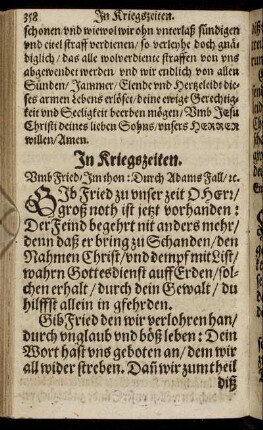 358 In Kriegszeiten.
schonen/ vnd wiewol wir ohn vnterlaß sündigen
vnd eitel straff verdienen/ so verleyhe doch gnä-
diglich/ das alle wolverdiente straffen von vns
abgewendet werden vnd wir endlich von allen
Sünden/ Jammer/ Elende vnd Hertzeleidt die-
ses armen Lebens erlöset/ deine ewige Gerechtig-
keit vnd Seeligkeit beerben mögen/ Vmb Jesu
Christi deines lieben Sohns/ vnsers HERREN
willen/ Amen.
In Kriegszeiten.
Vmb Fried/ Im thon: Durch Adams Fall/ ec.
GIb Fried zu vnser zeit O HErr/
groß noth ist jetzt vorhanden:
Der Feind begehrt nit anders mehr/
denn daß er bring zu Schanden/ den
Nahmen Christ/ vnd dempf mit List/
wahrn Gottesdienst auff Erden/ sol-
chen erhalt/ durch dein Gewalt/ du
hilffst allein in gfehrden.
Gib Fried den wir verlohren han/
durch vnglaub vnd böß leben: Dein
Wort hast vns geboten an/ dem wir
all wider streben. Dañ wir zum theil
diß